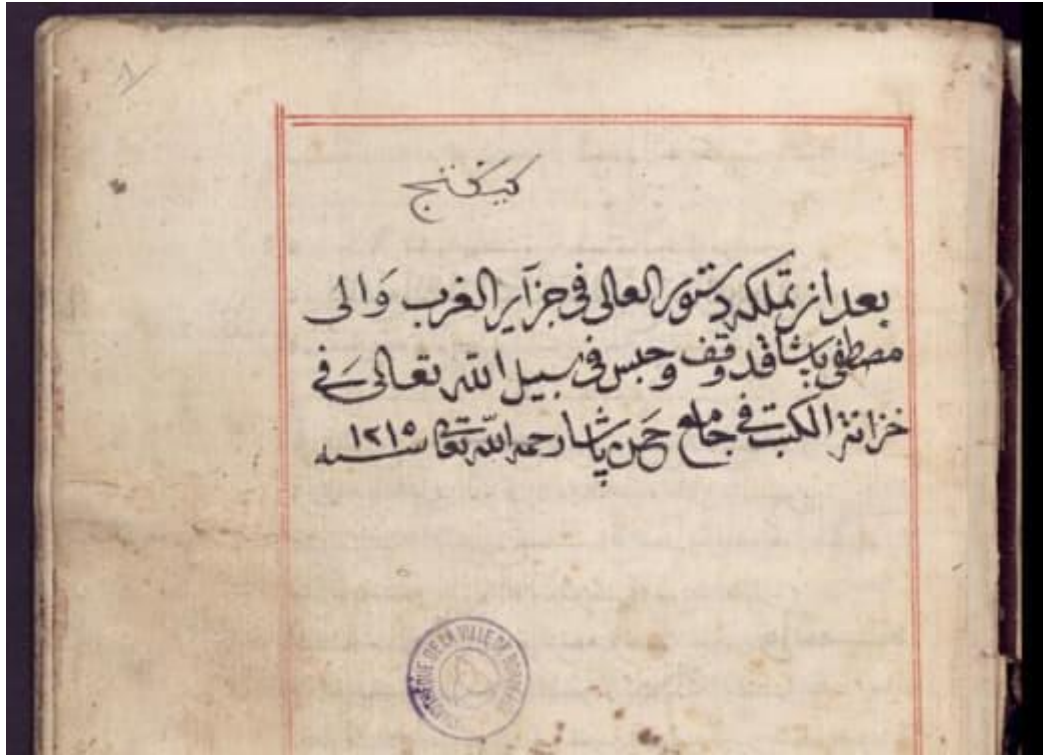 1
كيكنج
بعد از تملكه دستور العالى فى جزآير الغرب وَالى
مصطفى پاشا قد وقف وحبس فى سبيل الله تعالى فے
خزانة الكتب فے جامع حسن پاشا رحمه الله تعالى سنه ١٢١٥
BIBLIOTHÈQUE DE LA VILLE DE